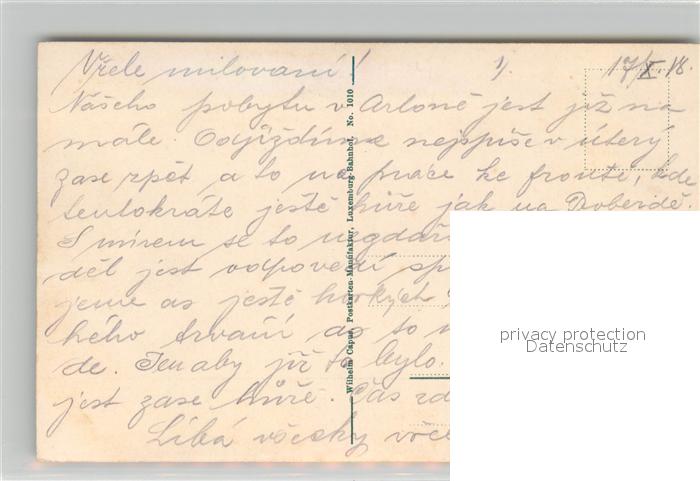 Vřele milovaní! 1/. 17/X. 18.
Našeho pobytu v Arloně jest již na
mále. Odjíždíme nejspíše v úterý
zase zpět a to na práce ke frontě, kde
tentokráte jest ještě hůře jak na Doberdě.
S mírem se to nezdaří
děl jest odpovědí
jeme as ještě horkých
hého trvání as to
de. Jen aby již to bylo.
jest zase hůře. Čas
Líbá všecky vřele
Wilhelm Capus, Postkarten-Manufaktur, Luxemburg-Bahnhof. No. 1010
privacy protection
Datenschutz